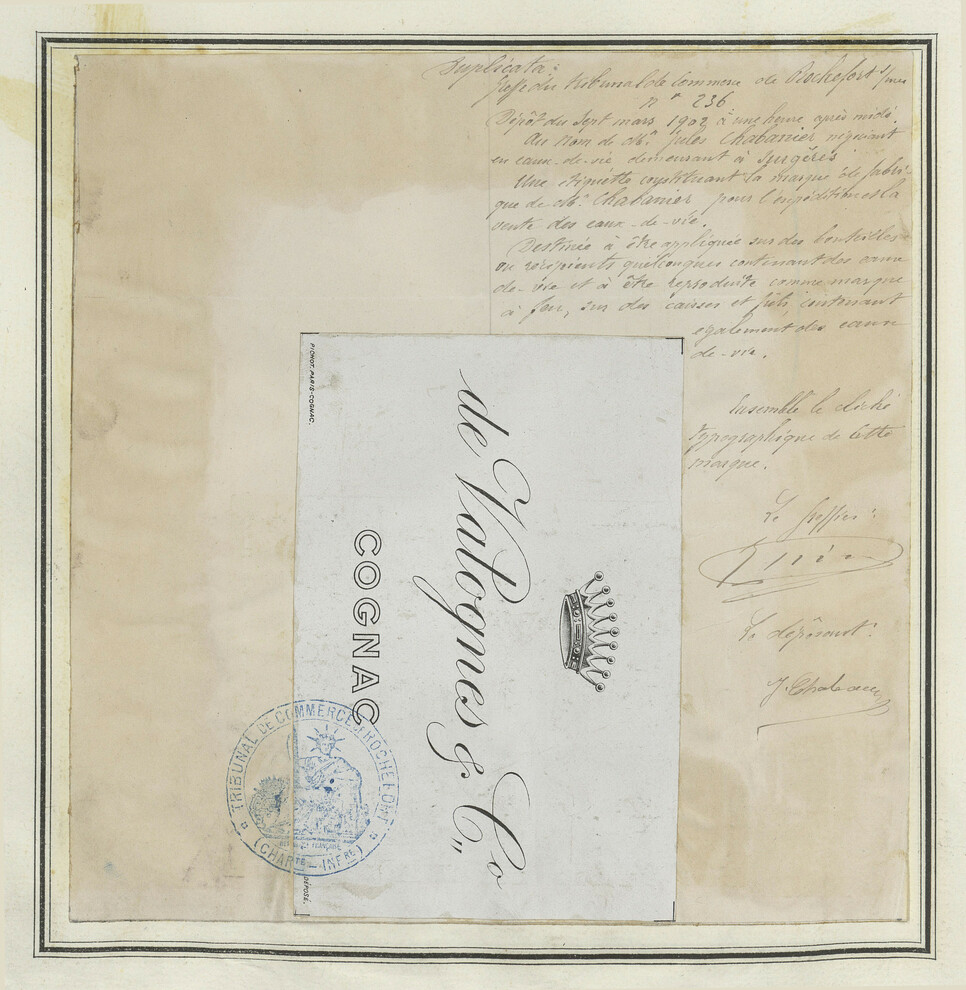 Duplicata :
Greffe du tribunal de Commerce de Rochefort s/mer
n° 236
Dépôt du sept mars 1902 à une heure après midi.
Au nom de Mr. Jules Chabanier négociant
en eaux-de-vie demeurant à Surgères
Une étiquette constituant la marque de fabri-
que de Mr. Chabanier pour l'expédition et la
vente des eaux-de-vie.
Destinée à être appliquée sur des bouteilles
ou récipients quelconques contenant des eaux
de-vie et à être reproduite comme marque
à feu, sur des caisses et fûts contenant
également des eaux
de-vie.
Ensemble le cliché
typographique de cette
marque.
Le greffier :
Le déposant :
J. Chabanier
PICHOT. PARIS-COGNAC.
de Valognes & Co
COGNAC
DÉPOSÉ.
TRIBUNAL DE COMMERCE ROCHEFORT
RÉPUBLIQUE FRANÇAISE
(CHARTE - INFRE)